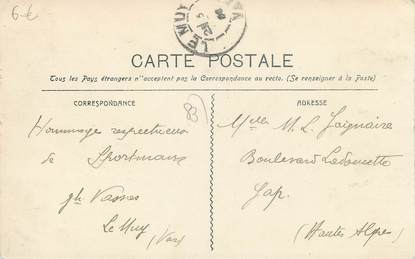 6 €
LE MUY
CARTE POSTALE
Tous les Pays étrangers n'acceptent pas la Correspondance au recto. (Se renseigner à la Poste)
CORRESPONDANCE
ADRESSE
83
Hommage respectueux
de Sportmane
Le Muy
(Var)
M. L. Joignaire
Boulevard Ladoucette
Gap.
(Hautes Alpes)